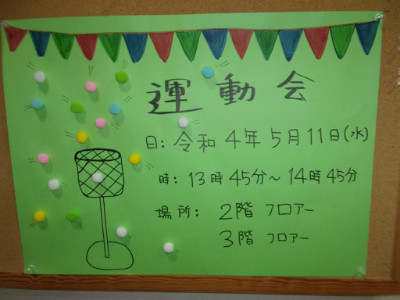 運動会
日: 令和4年5月11日(水)
時: 13時45分～14時45分
場所: 2階 フロアー
3階 フロアー